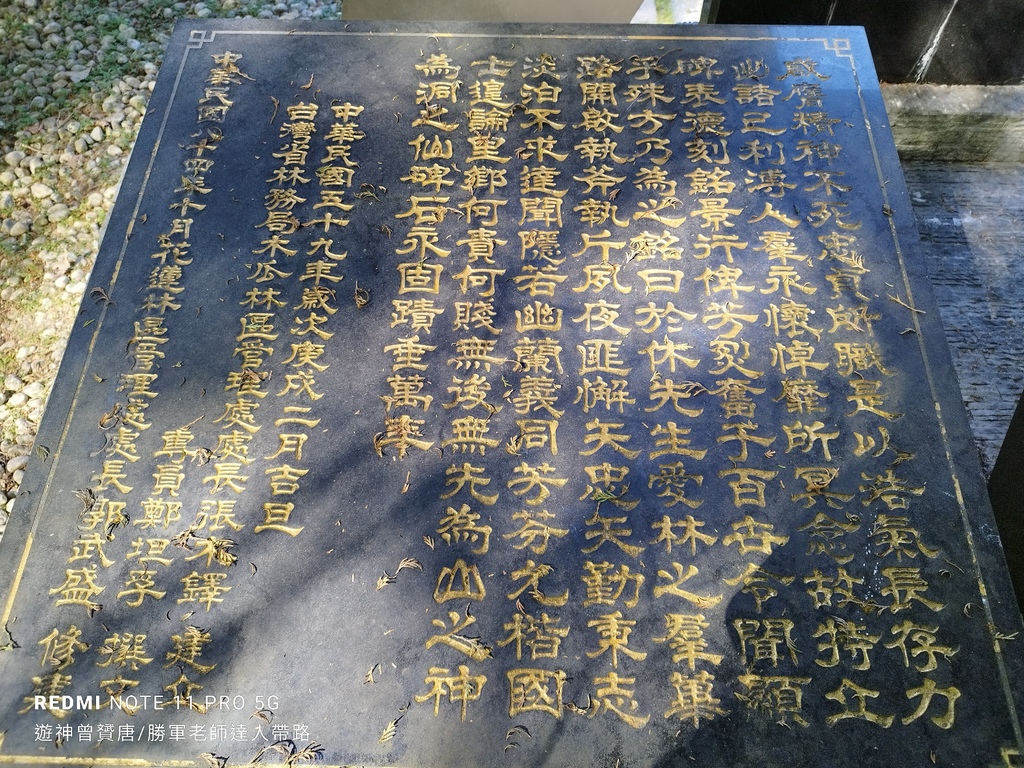 膺精神不死忠貞厥職是以浩氣長存力
諸己利溥人羣永懷悼靡所冥念故特立
碑表德刻銘景行俾芳烈奮乎百世令聞顯
乎殊方乃為之銘曰於休先生愛林之羣菓
路開啟執斧執斤夙夜匪懈矢忠矢勤秉志
淡泊不求達聞隱若幽蘭義同芳芬允楷國
士遑歸里鄉何貴何賤無後無先為山之神
為洞之仙碑石永固蹟垂萬年
中華民國五十九年歲次庚戌二月吉旦
台灣省林務局木瓜林區管理處處長張福鐸 建立
專員鄭坦孚 撰文
中華民國八十四年十月花蓮林區管理處處長郭武盛 修建
REDMI NOTE 11 PRO 5G
遊神曾贊唐/勝軍老師達人帶路